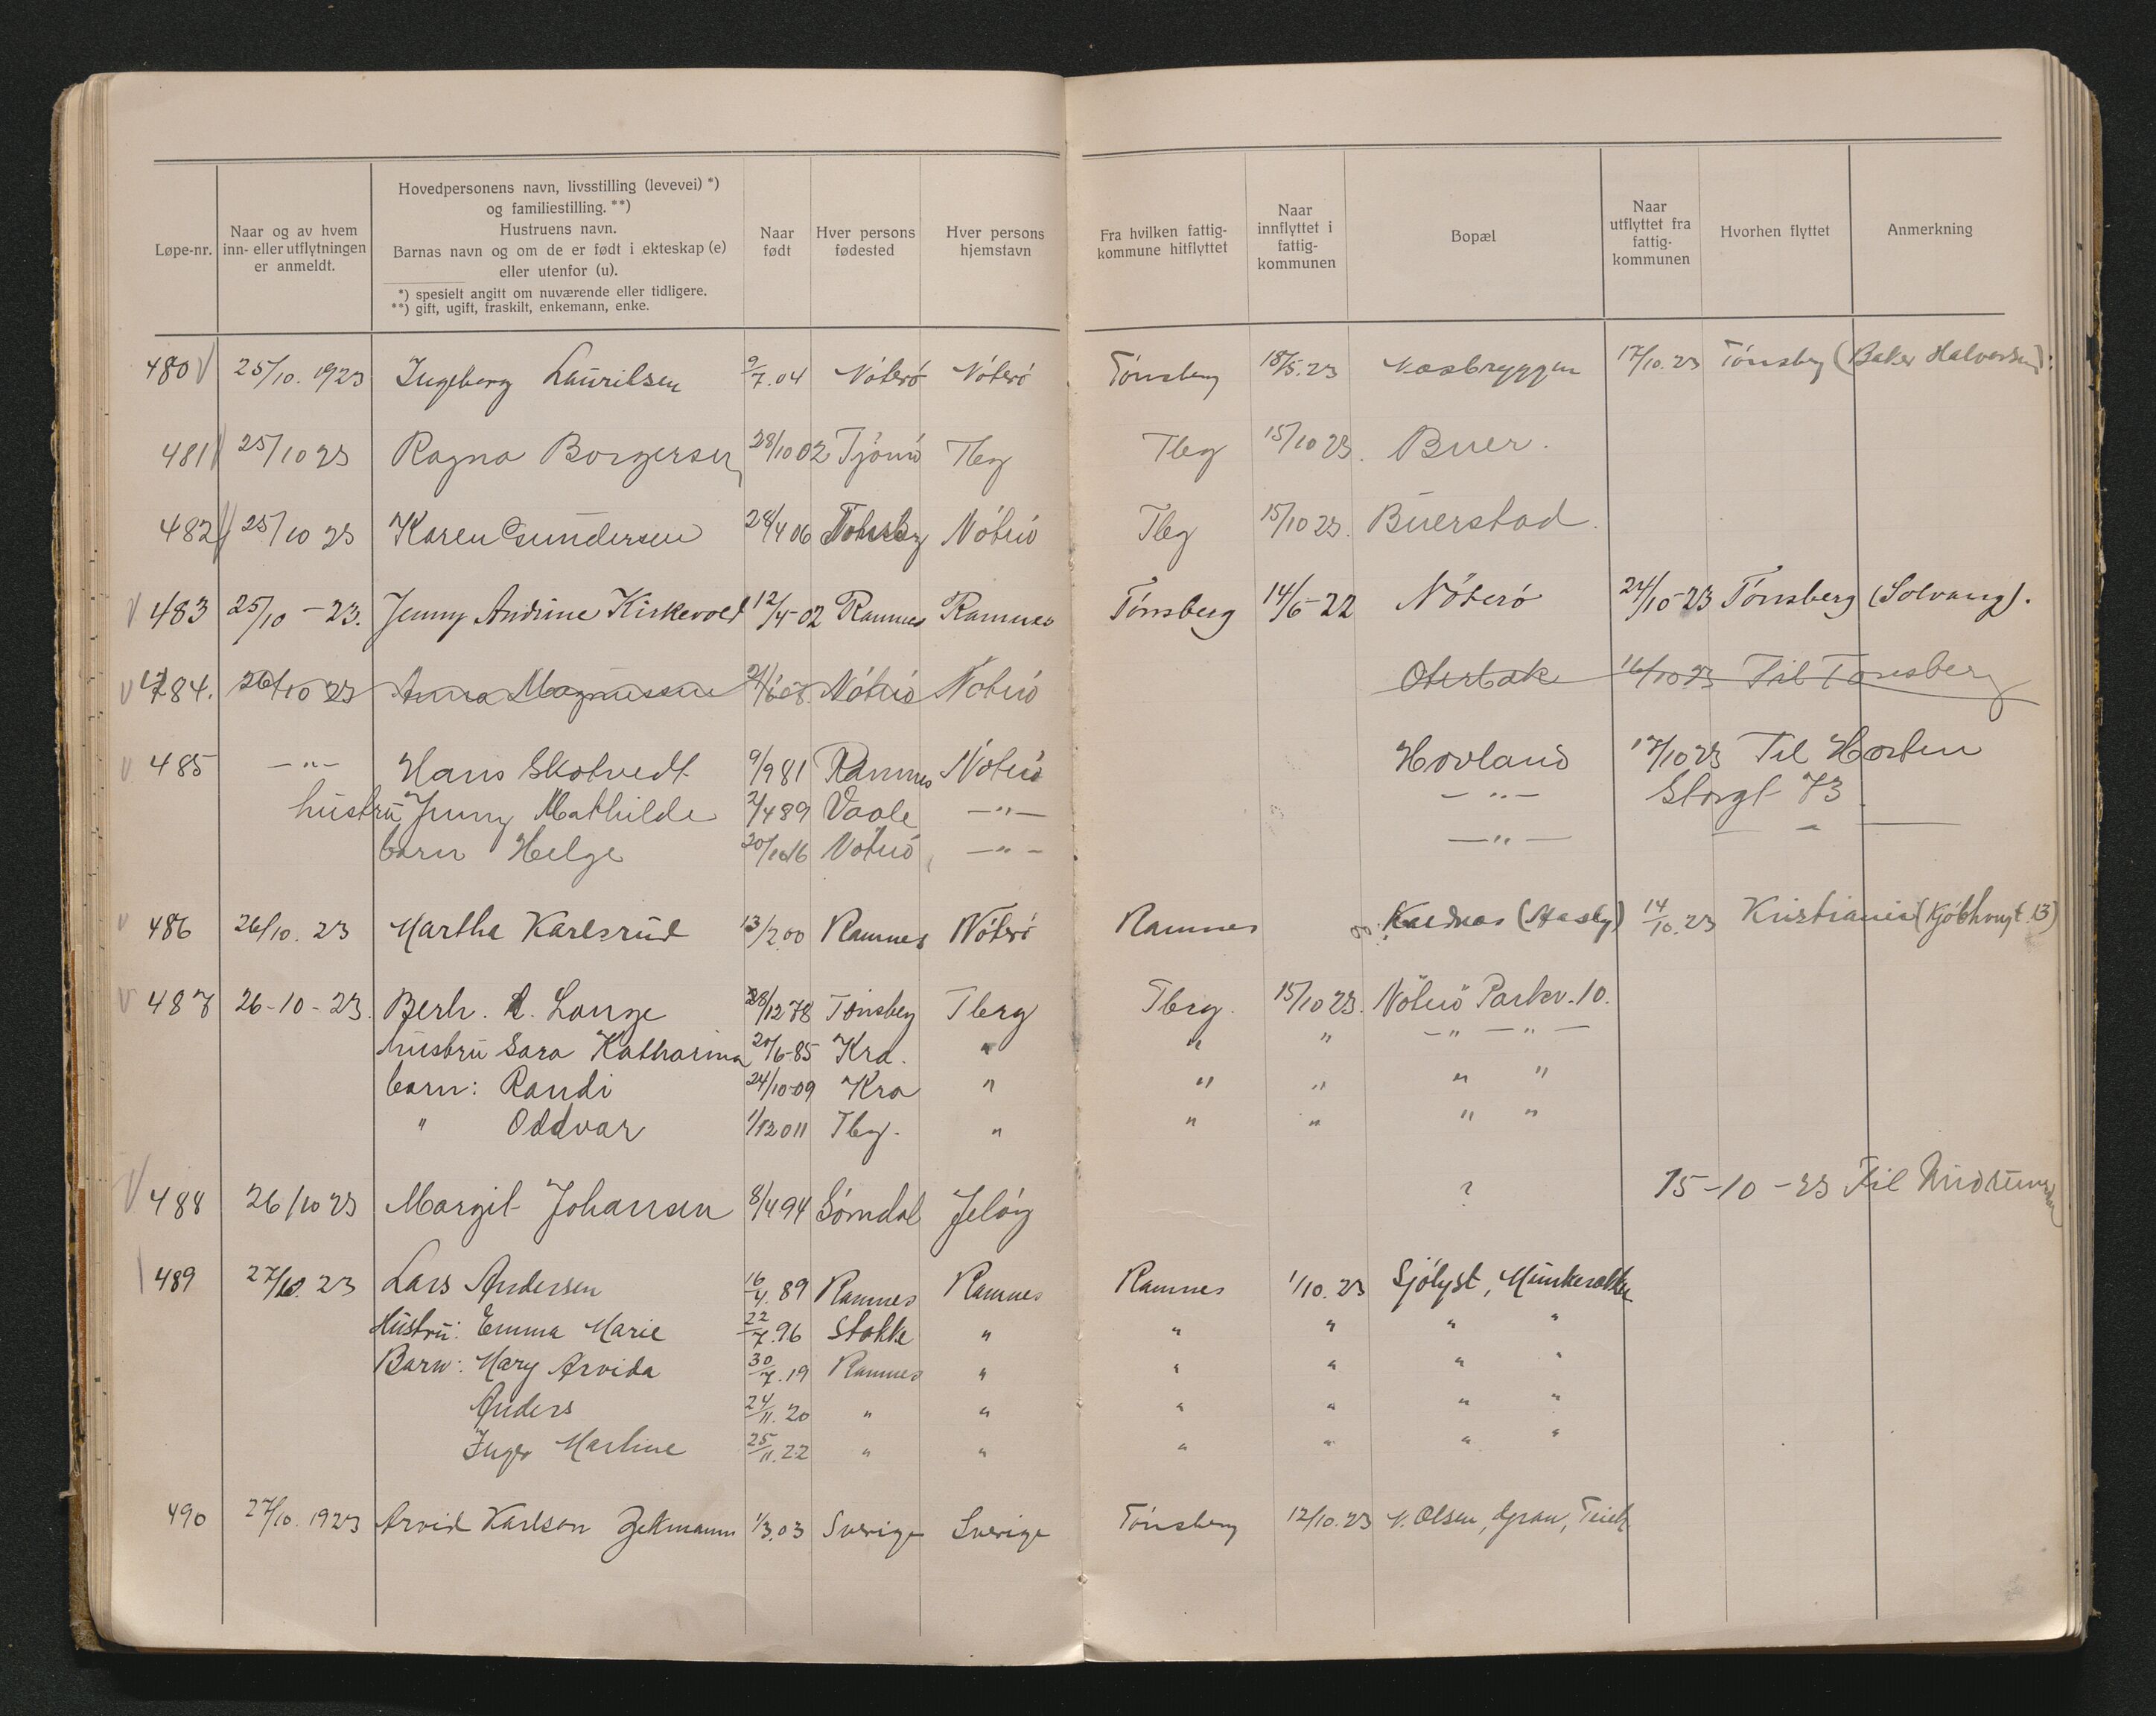 Løpe-nr.
Naar og av hvem inn- eller utflytningen er anmeldt.
Hovedpersonens navn, livsstilling (levevei) *)
og familiestilling. **)
Hustruens navn.
Barnas navn og om de er født i ekteskap (e)
eller utenfor (u).
*) spesielt angitt om nuværende eller tidligere.
**) gift, ugift, fraskilt, enkemann, enke.
Naar født
Hver persons fødested
Hver persons hjemstavn
Fra hvilken fattig-kommune hitflyttet
Naar innflyttet i fattig-kommunen
Bopæl
Naar utflyttet fra fattig-kommunen
Hvorhen flyttet
Anmerkning
480 25/10. 1923 Ingeborg Lauritsen 9/7.04 Nøterø Nøterø Tønsberg 18/5.23 Næsbryggen 17/10.23 Tønsberg (Baker Halvorsen):
481 25/10 23 Ragna Borgersen 28/10 02 Tjømø Tbg Tbg 15/10 23. Buer.
482 25/10 23 Karen Gundersen 28/4 06 Tønsberg Nøterø Tbg 15/10 23. Buerstad.
483 25/10 - 23. Jenny Andrine Kirkevold 12/4-02 Ramnes Ramnes Tønsberg 14/6-22 Nøterø 24/10-23 Tønsberg (Solvang).
484. 26/10 23 Anna Magnussen Nøterø Nøterø Oterbæk 16/10 23 Til Tønsberg
485 -"- Hans Skotvedt 9/9 81 Ramnes Nøterø Hovland 17/10 23 Til Horten
hustru Jenny Mathilde 2/4 89 Vaale -"- -"- Storgt 73
barn Helge 20/10 16 Nøterø -"- -"- - " -
486 26/10. 23 Martha Karlsrud 13/2.00 Ramnes Nøterø Ramnes Kaldnæs (Hasly) 14/10.23 Kristiania (Kjøbhvngt. 13)
487 26-10-23. Berh. A. Lange 28/12 78 Tønsberg Tberg Tberg. 15/10 23. Nøterø Parkv. 10.
hustru Sara Katharina 20/6-85 Kra. " " " -"-"-
barn: Randi 24/10-09 Kra " " " " "
" Oddvar 1/12 011 Tbg. " " " " "
488 26/10 23 Margit Johansen 8/4 94 Sørndal Jeløy ? 15-10-23 Til
489 27/10. 23 Lars Andersen 16/4. 89 Ramnes Ramnes Ramnes 1/10. 23 Sjølyst, Munkerekken
Hustru: Emma Marie 22/7.96 Stokke " " " " "
Barn: Mary Arvida 30/7.19 Ramnes " " " " "
Anders 24/11. 20 " " " " " "
Inger Martine 25/11.22 " " " " " "
490 27/10. 1923 Arvid Karlson 1/3.03 Sverige Sverige Tønsberg 12/10.23 N. Olsen, Gran, Teie